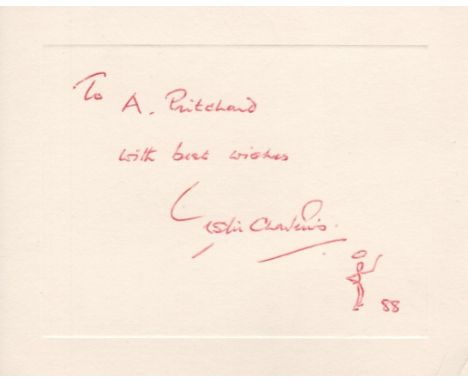 To A. Pritchard
with best wishes
Leslie Charteris.
88